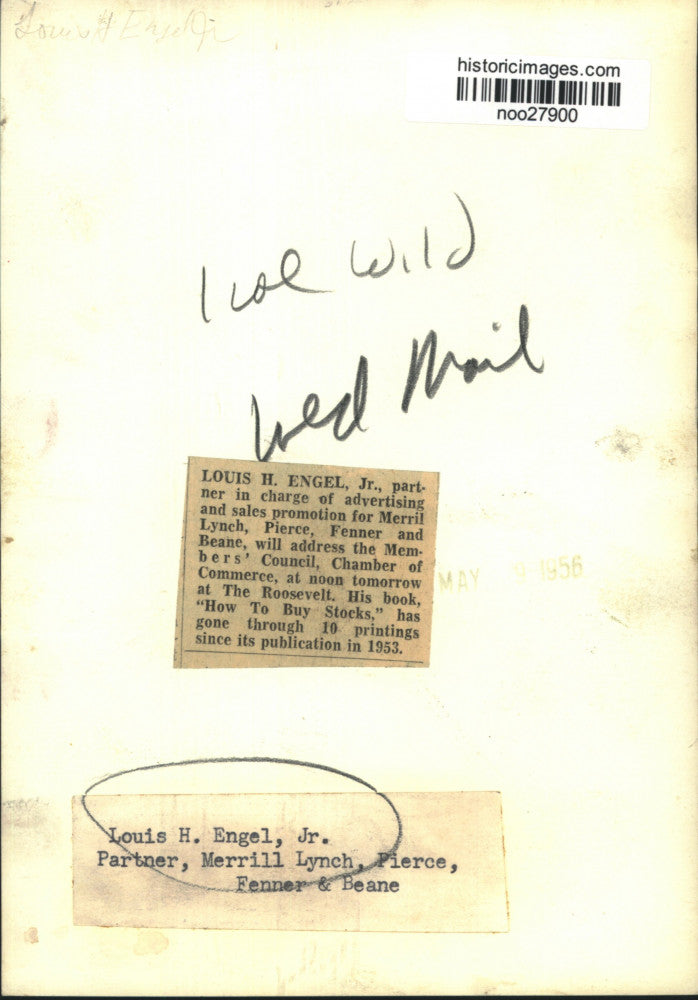 Louis H Engel Jr
historicimages.com
noo27900
1 col Wild
Wed Mail
LOUIS H. ENGEL, Jr., part-
ner in charge of advertising
and sales promotion for Merril
Lynch, Pierce, Fenner and
Beane, will address the Mem-
bers' Council, Chamber of
Commerce, at noon tomorrow
at The Roosevelt. His book,
"How To Buy Stocks," has
gone through 10 printings
since its publication in 1953.
MAY 9 1956
Louis H. Engel, Jr.
Partner, Merrill Lynch, Pierce,
Fenner & Beane